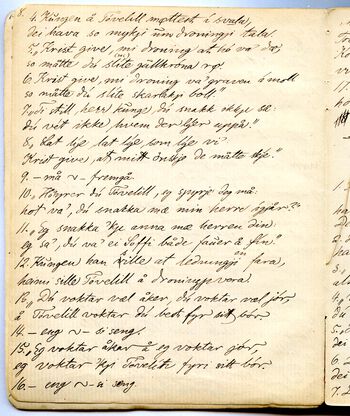 8.
4. Kúngen å Tovelill møttest i svala,
dei hava so mykji unn droningji tala.
5, Krist give, mi droning at hó va dæ
so måtte dú slite gúllkróna rø.
6. Krist give, mi droning va graven å moll
so måtte dú slite skarlakji boll."
7, Ti still herr kúnge, dú snakk ikkje så:
dú veit ikke, hvem der lyer uppå."
8, Lat lye lat lye som lye vi
Krist give, at mitt ønskje de måtte skje."
9. – må ~ – fremgå
10, Høyrer dú Tovelill, eg spyrje deg må
hot va', dú snakka mæ min herre igjår?"
11., Eg snakka 'kje anna mæ herren din
eg sa', dú va' ei Soffi både fauer å fin."
12. Kúngen han skille at ledungji fara,
hanni sille Tovelill å droningji vara.
13, Dú voktar vel åker, dú voktar vel jór,
å Tovelill voktar dú best fyr sitt bór.
14. – eng ~ – si seng.
15, Eg voktar åkar å eg voktar jór,
eg voktar 'kje Tovelill fyri sitt bór.
16. – eng ~ – si seng.